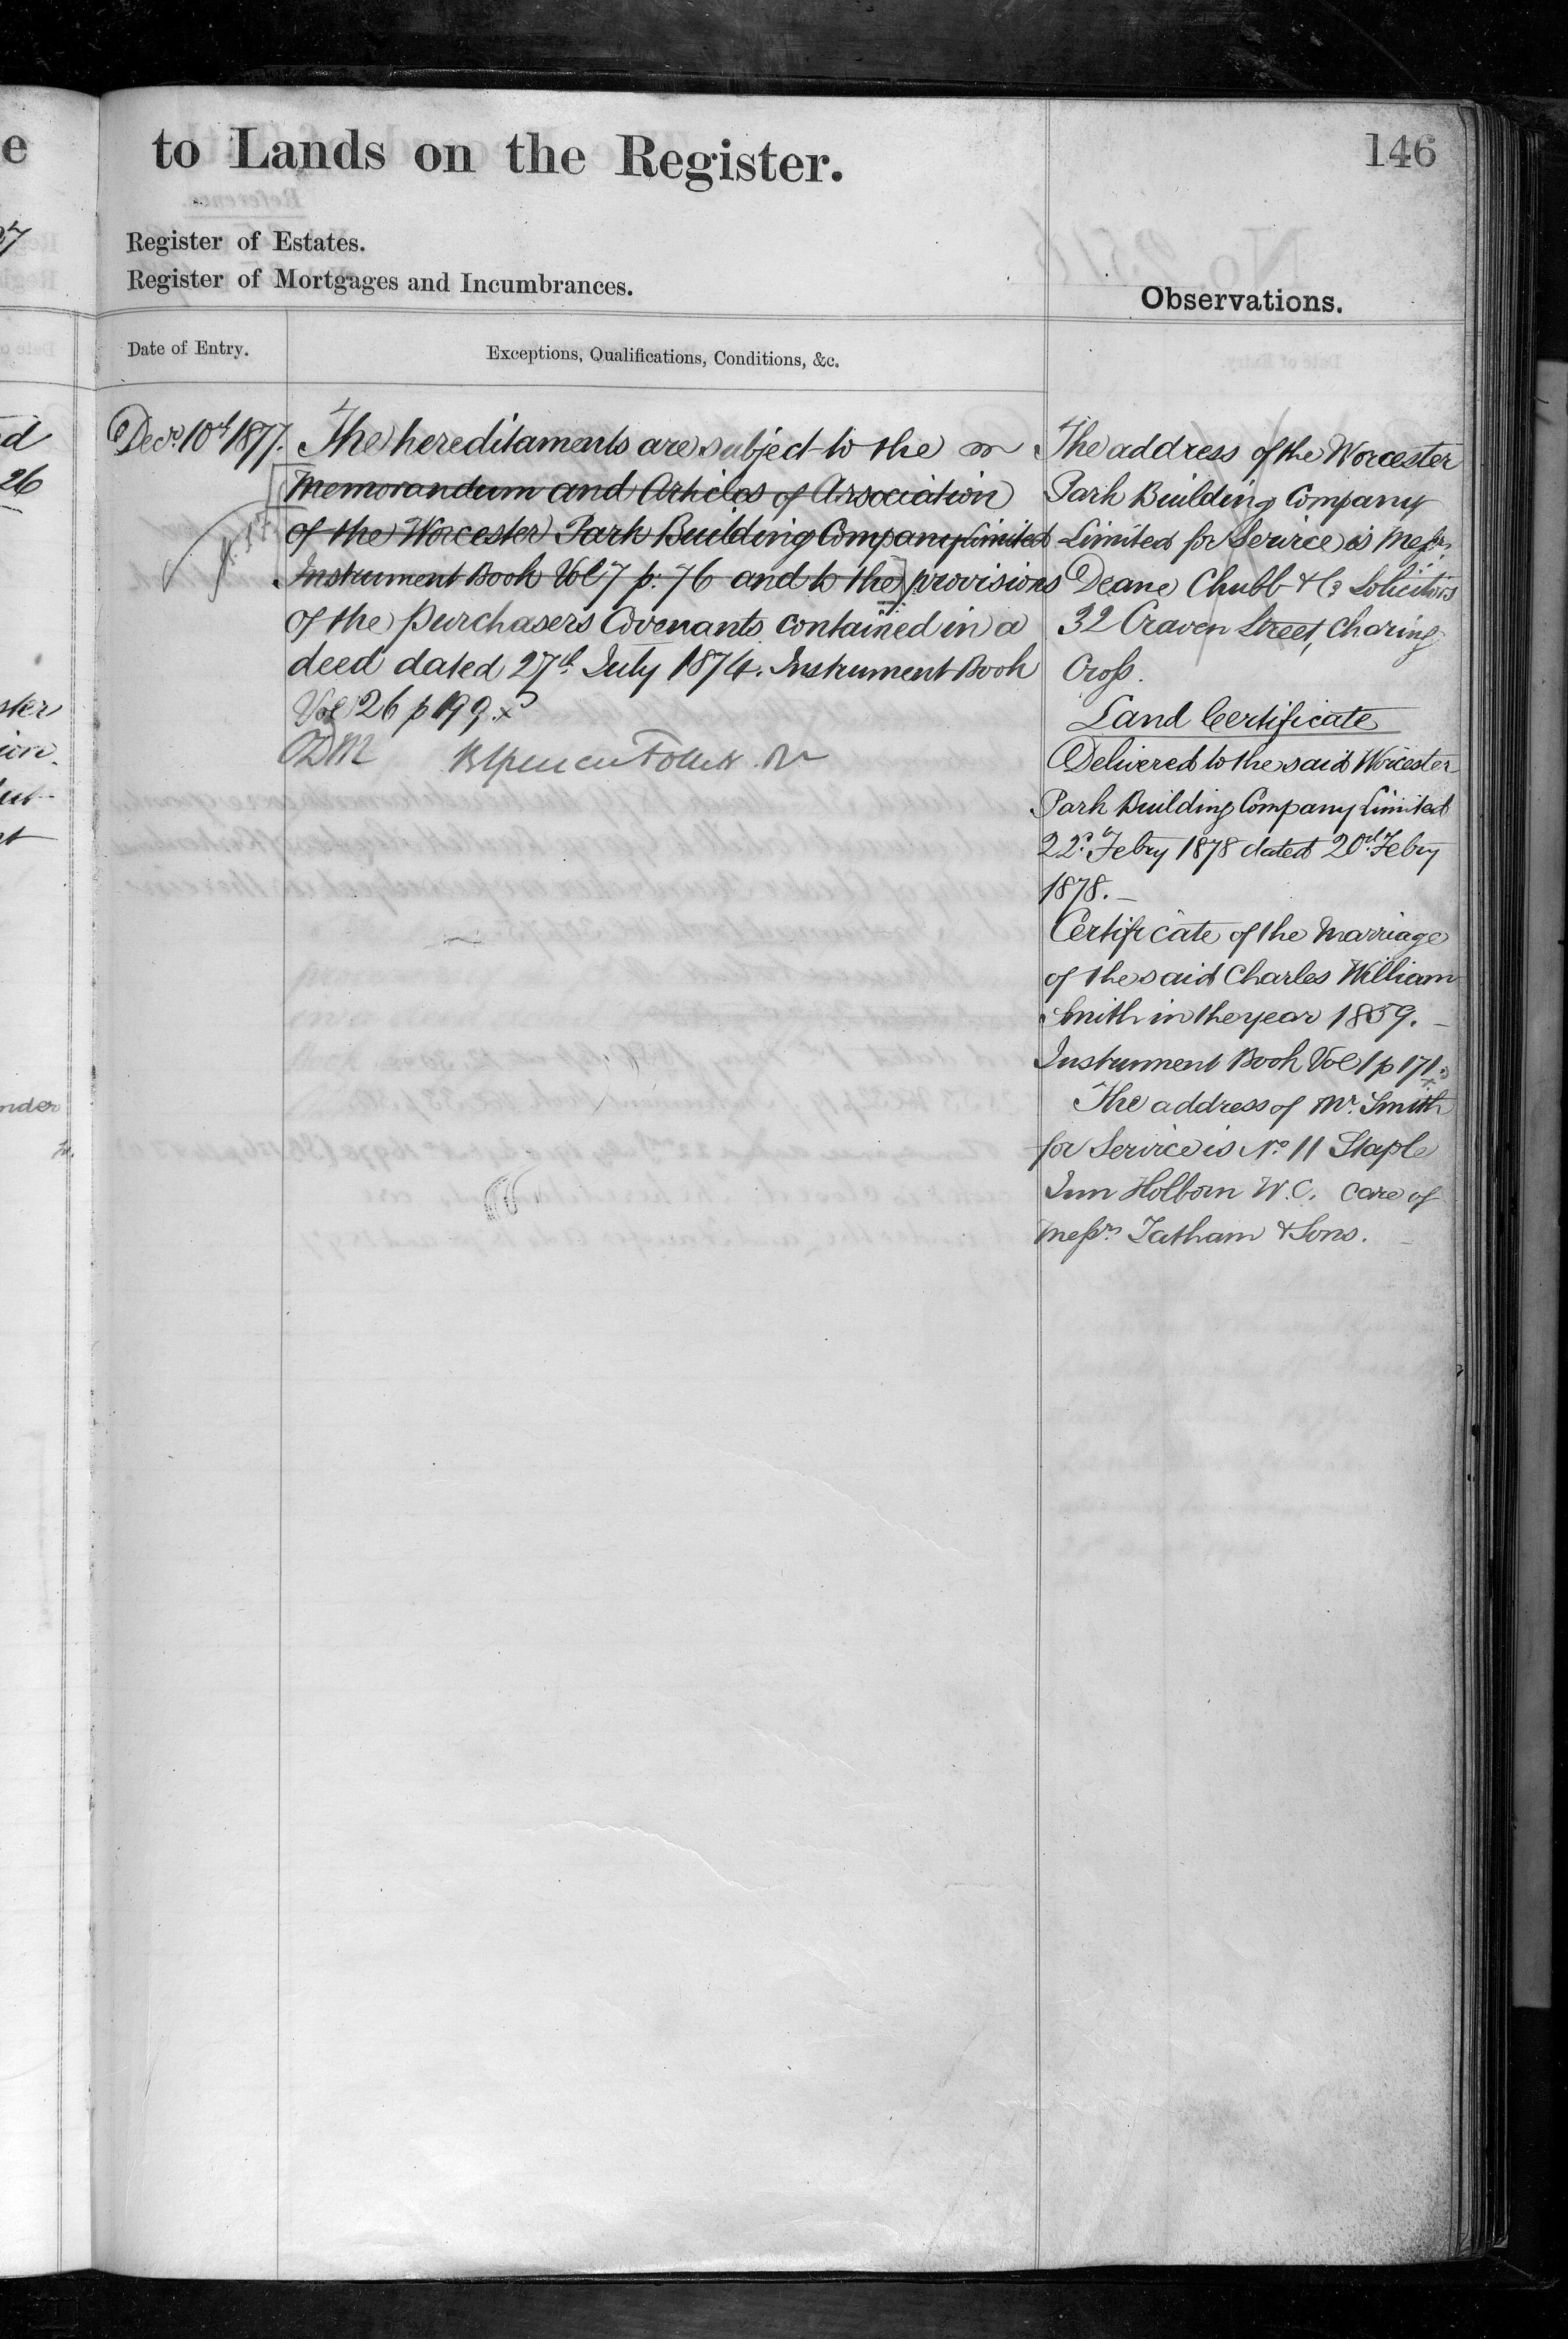 to Lands on the Register.
146
Register of Estates.
Register of Mortgages and Incumbrances.
Observations.
Date of Entry.
Exceptions, Qualifications, Conditions, &c.
Decr. 10th 1877.
The hereditaments are subject to the
Memorandum and Articles of Association
of the Worcester Park Building Company Limited
Instrument Book Vol 7 p. 76 and to the provisions
of the purchasers Covenants contained in a
deed dated 27th July 1874. Instrument Book
Vol 26 p 199. x
The address of the Worcester
Park Building Company
Limited for Service is Messrs
Deane Chubb & Co Solicitors
32 Craven Street, Charing
Cross.
Land Certificate
Delivered to the said Worcester
Park Building Company Limited
22d Febry 1878 dated 20th Febry
1878. —
Certificate of the Marriage
of the said Charles William
Smith in the year 1859. —
Instrument Book Vol 1 p 171. x
The address of Mr. Smith
for Service is No 11 Staple
Inn Holborn W.C. care of
Messrs. Tatham & Sons. —
e
27
d
26
ster
ion.
nder